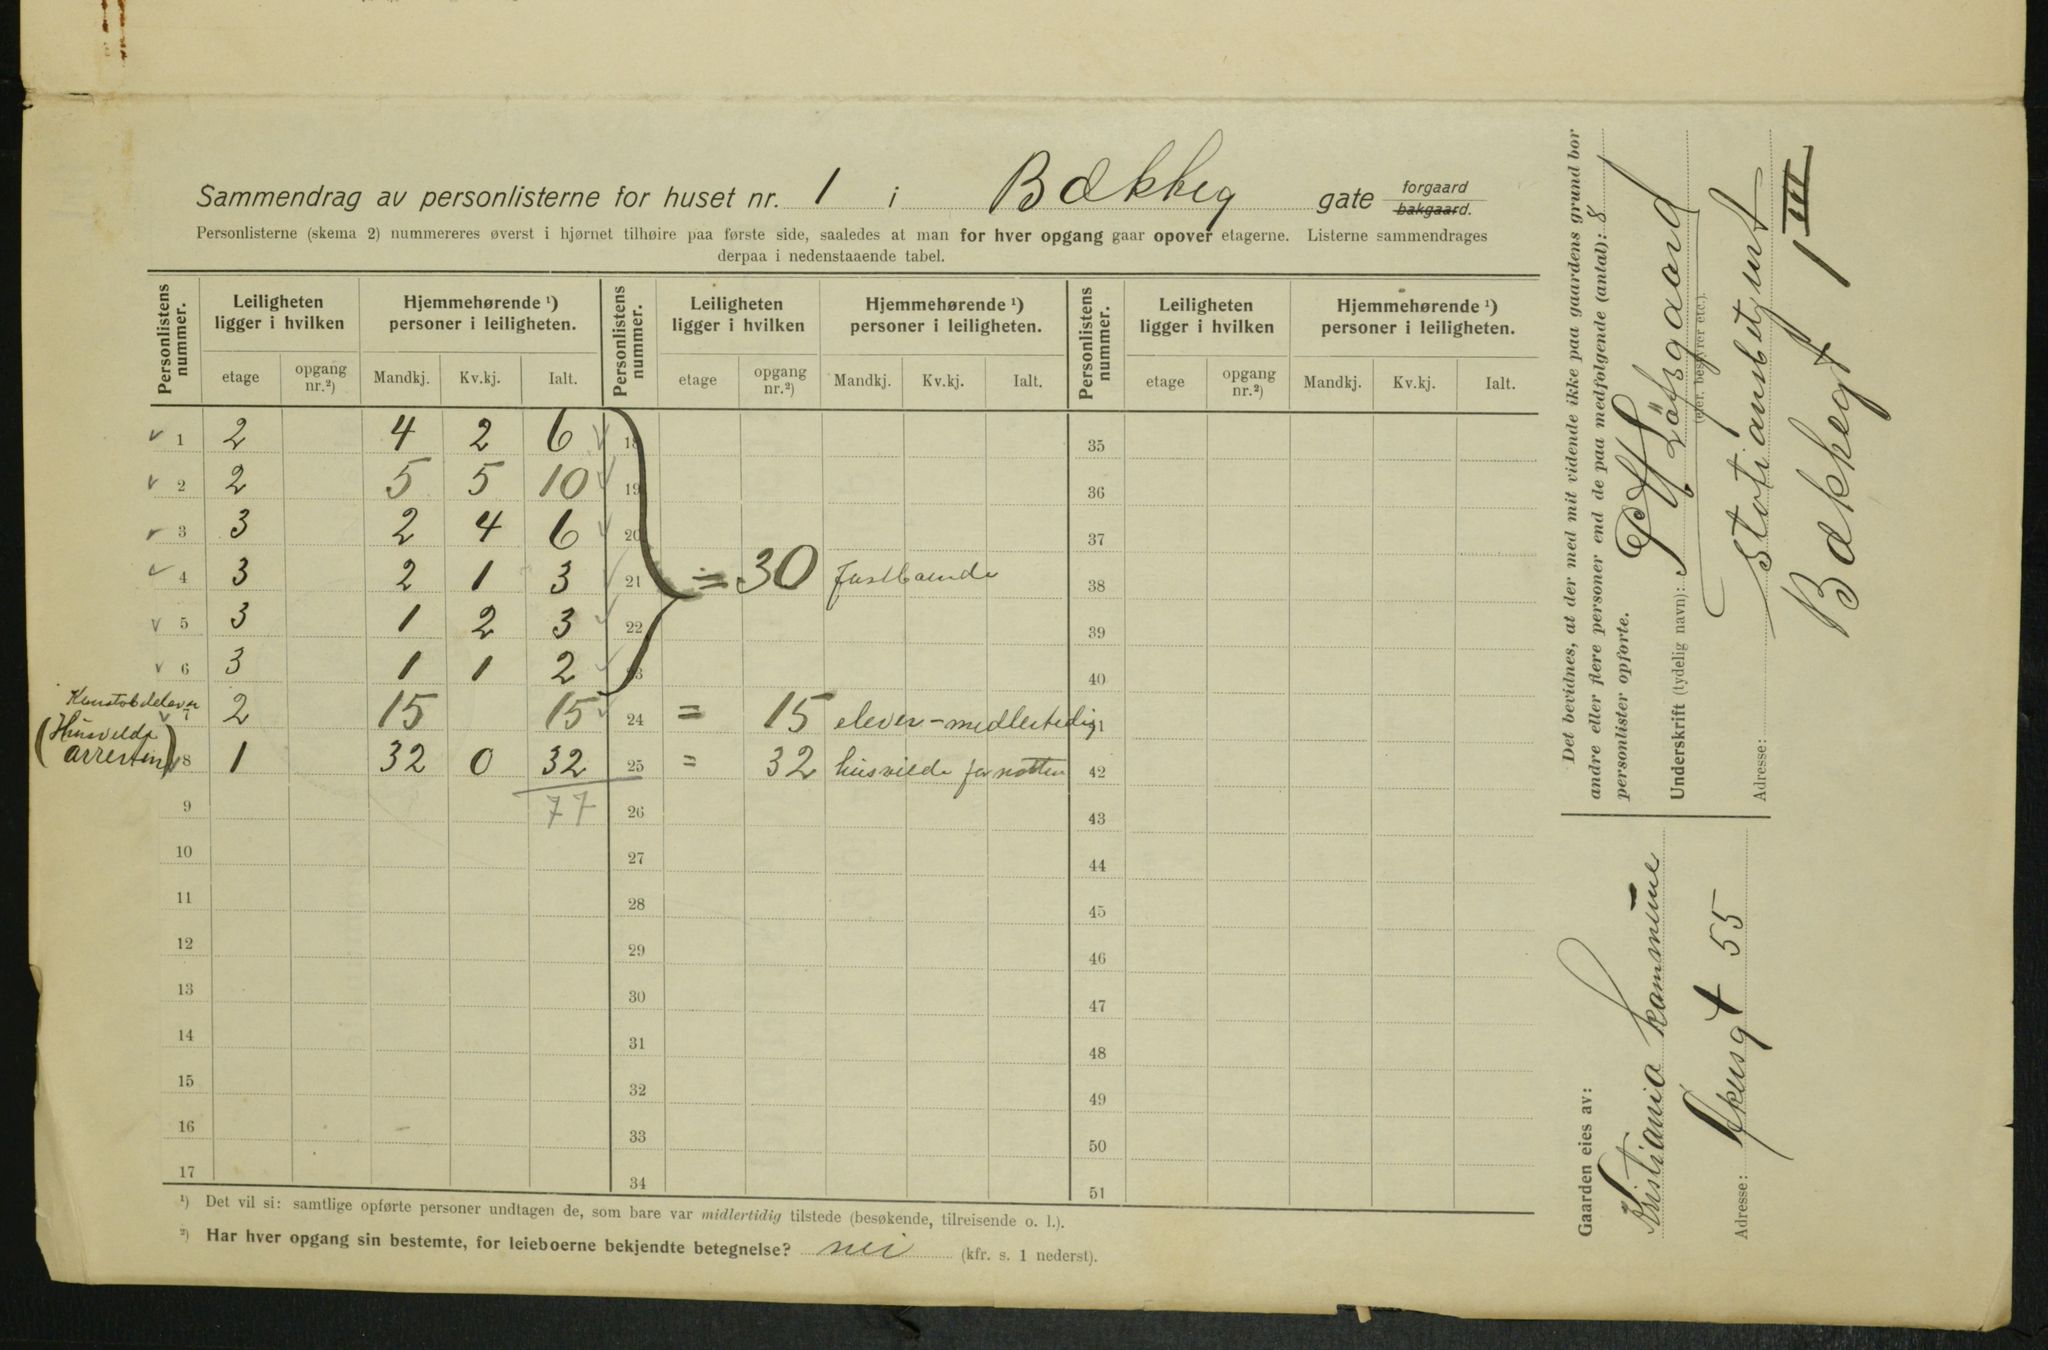 Sammendrag av personlisterne for huset nr. 1 i Bækkeg gate forgaard bakgaard.
Personlisterne (skema 2) nummereres øverst i hjørnet tilhøire paa første side, saaledes at man for hver opgang gaar opover etagerne. Listerne sammendrages
derpaa i nedenstaaende tabel.
Personlistens nummer. Leiligheten ligger i hvilken Hjemmehørende ¹) personer i leiligheten. Personlistens nummer. Leiligheten ligger i hvilken Hjemmehørende ¹) personer i leiligheten. Personlistens nummer. Leiligheten ligger i hvilken Hjemmehørende ¹) personer i leiligheten.
etage opgang nr.²) Mandkj. Kv.kj. Ialt. etage opgang nr.²) Mandkj. Kv.kj. Ialt. etage opgang nr.²) Mandkj. Kv.kj. Ialt.
1 2 4 2 6 18 35
2 2 5 5 10 19 36
3 3 2 4 6 20 37
4 3 2 1 3 21 = 30 fastboende 38
5 3 1 2 3 22 39
6 3 1 1 2 23 40
7 2 15 15 24 = 15 elever - medlertedig 41
(Husvilde
arresten) 8 1 32 0 32 25 = 32 husvilde for natten 42
77
9 26 43
10 27 44
11 28 45
12 29 46
13 30 47
14 31 48
15 32 49
16 33 50
17 34 51
¹) Det vil si: samtlige opførte personer undtagen de, som bare var midlertidig tilstede (besøkende, tilreisende o. l.).
²) Har hver opgang sin bestemte, for leieboerne bekjendte betegnelse? nei (kfr. s. 1 nederst).
Det bevidnes, at der med mit vidende ikke paa gaardens grund bor
andre eller flere personer end de paa medfølgende (antal): 8
personlister opførte.
Underskrift (tydelig navn):
(eier, bestyrer etc.).
Adresse:
Bækkegt 1 III
Gaarden eies av:
Kristiania kommune
Adresse: Akersgt 55